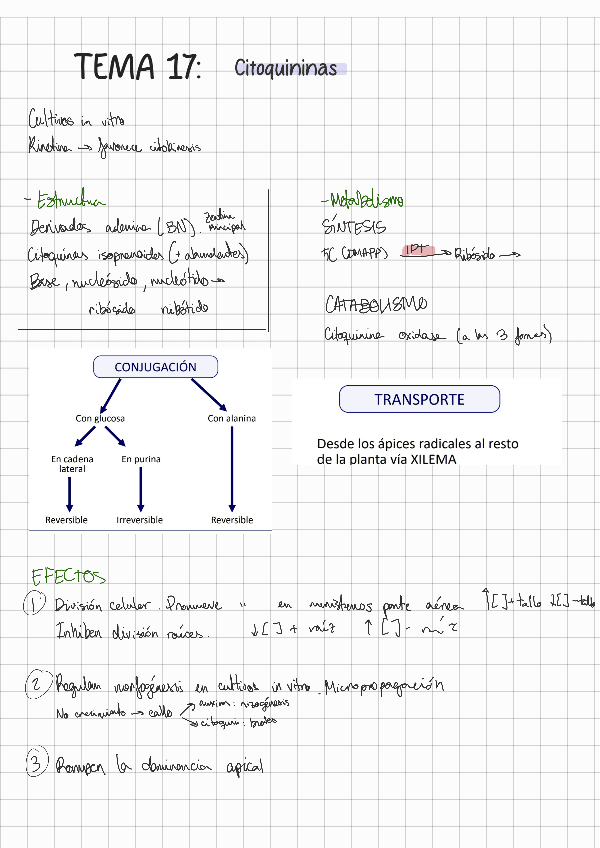 TEMA 17: Citoquininas
Cultivos in vitro
Kinetina → favorece citokinesis
- Estructura
Derivados adenina (BN). Zeatina principal
Citoquinas isoprenoides (+ abundantes)
Base, nucleósido, nucleótido →
ribósido ribótido
- Metabolismo
SÍNTESIS
5C (DMAPP) IPT → Ribósido →
CATABOLISMO
Citoquinina oxidasa (a las 3 formas)
CONJUGACIÓN
Con glucosa Con alanina
En cadena lateral En purina
Reversible Irreversible Reversible
TRANSPORTE
Desde los ápices radicales al resto
de la planta vía XILEMA
EFECTOS
① División celular. Promueve " en meristemos parte aérea ↑[] + tallo ↓[] - tallo
Inhiben división raíces. ↓[] + raíz ↑[] - raíz
② Regulan morfogénesis en cultivos in vitro. Micropropagación
No crecimiento → callo
auxim: rizogénesis
citoquin: brotes
③ Rompen la dominancia apical